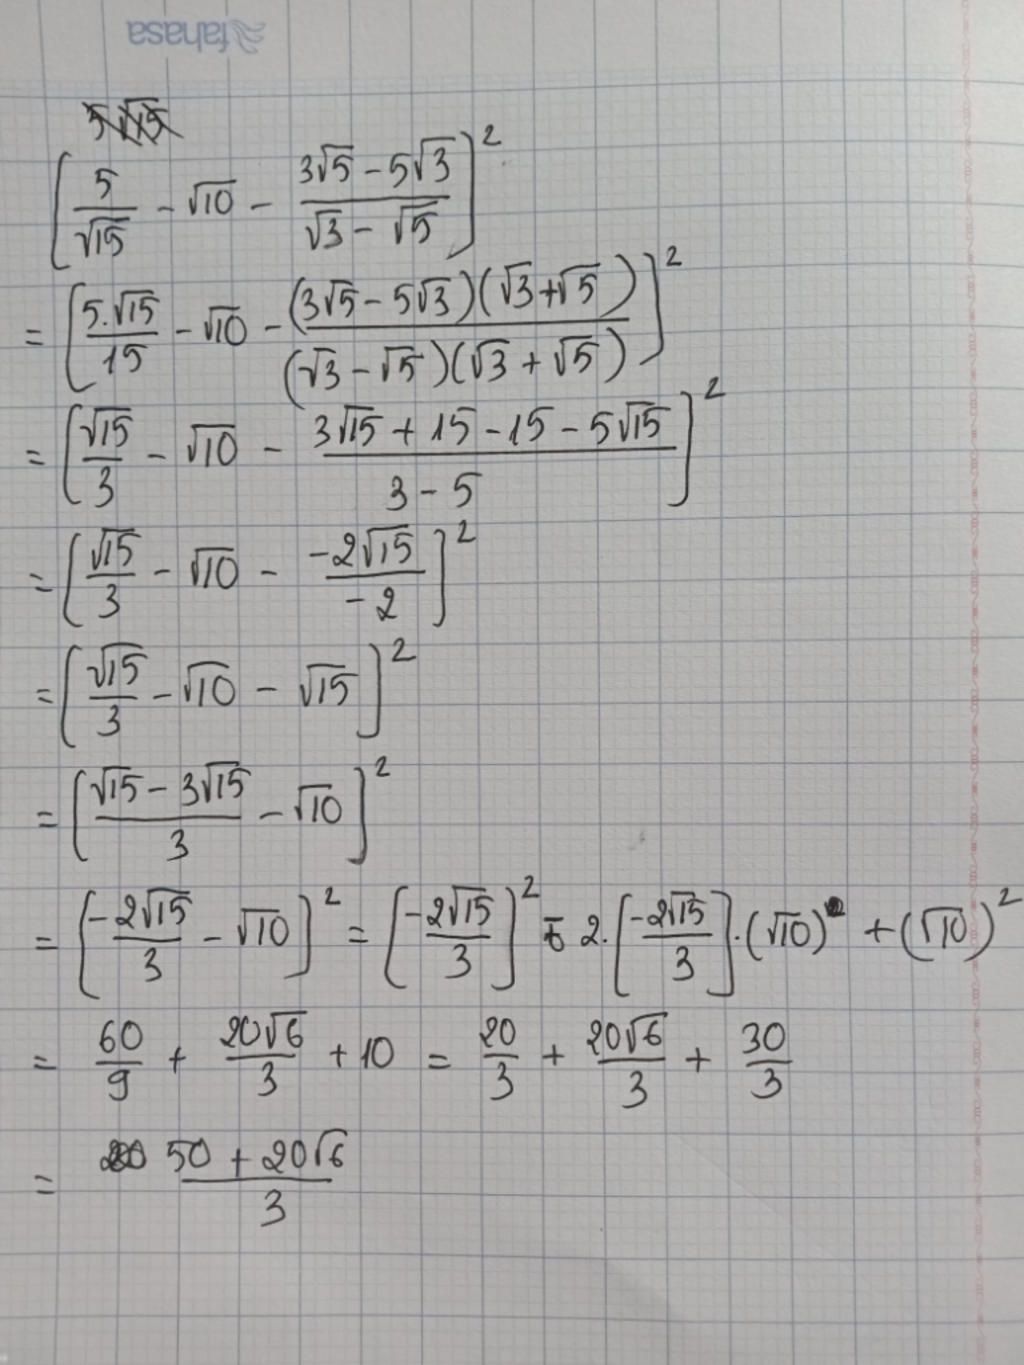 fahasa
[5/√15 - √10 - (3√5 - 5√3)/(√3 - √5)]²
= [5.√15/15 - √10 - (3√5 - 5√3)(√3 + √5)/(√3 - √5)(√3 + √5)]²
= [√15/3 - √10 - (3√15 + 15 - 15 - 5√15)/(3 - 5)]²
= [√15/3 - √10 - (-2√15)/(-2)]²
= [√15/3 - √10 - √15]²
= [(√15 - 3√15)/3 - √10]²
= [-2√15/3 - √10]² = [-2√15/3]² - 2.[-2√15/3].(√10) + (√10)²
= 60/9 + 20√6/3 + 10 = 20/3 + 20√6/3 + 30/3
= (50 + 20√6)/3